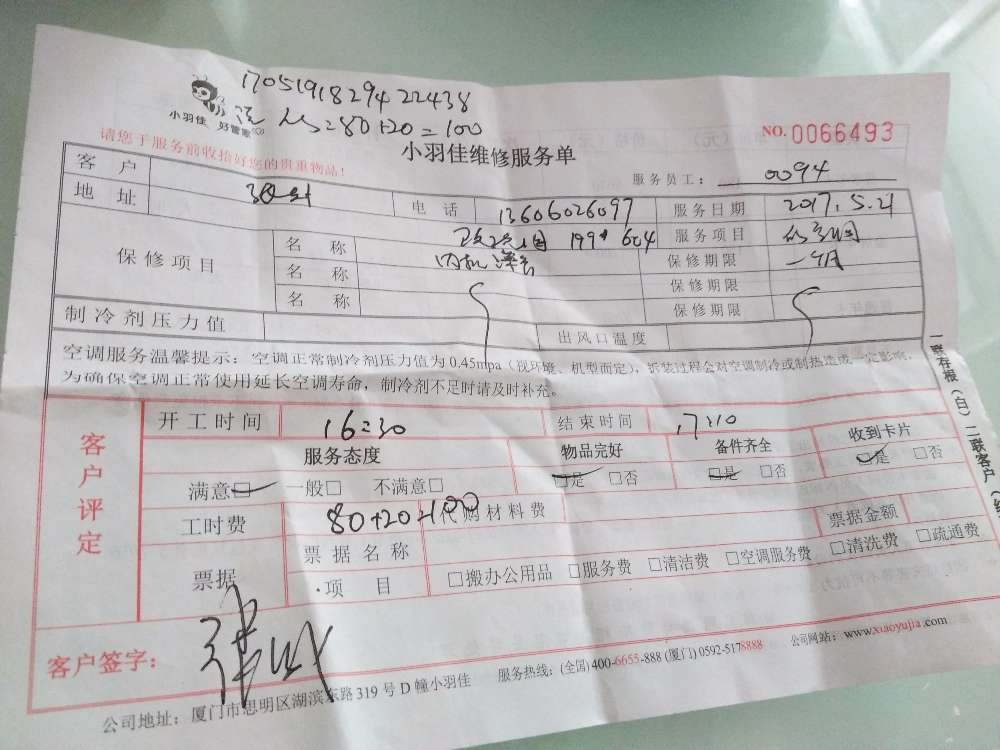 17051918294 22438
小羽佳 好管家
=80+20=100
NO.0066493
请您于服务前收拾好您的贵重物品!
小羽佳维修服务单
服务员工: 0094
客户
地址 电话 13606026097 服务日期 2017.5.21
保修项目 名称 199# 604 服务项目
名称 内机 保修期限 一个月
名称 保修期限
保修期限
制冷剂压力值 出风口温度
空调服务温馨提示:空调正常制冷剂压力值为0.45mpa(视环境、机型而定),拆装过程会对空调制冷或制热造成一定影响,
为确保空调正常使用延长空调寿命,制冷剂不足时请及时补充。
客户评定
开工时间 16:30 结束时间 17:10
服务态度 物品完好 备件齐全 收到卡片
满意□ 一般□ 不满意□ □是 □否 □是 □否 □是 □否
工时费 80+20=100 代购材料费 票据金额
票据 票据名称
·项目 □搬办公用品 □服务费 □清洁费 □空调服务费 □清洗费 □疏通费
客户签字:
公司地址:厦门市思明区湖滨东路319号D幢小羽佳 服务热线:(全国)400-6655-888(厦门)0592-5178888 公司网站:www.xiaoyujia.com
一联存根(白)二联客户(